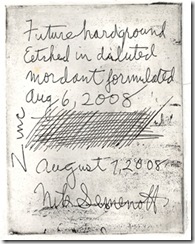 Future hardground
Etched in diluted
mordant formulated
Aug 6, 2008
Zinc
August 7, 2008
Nik Semenoff